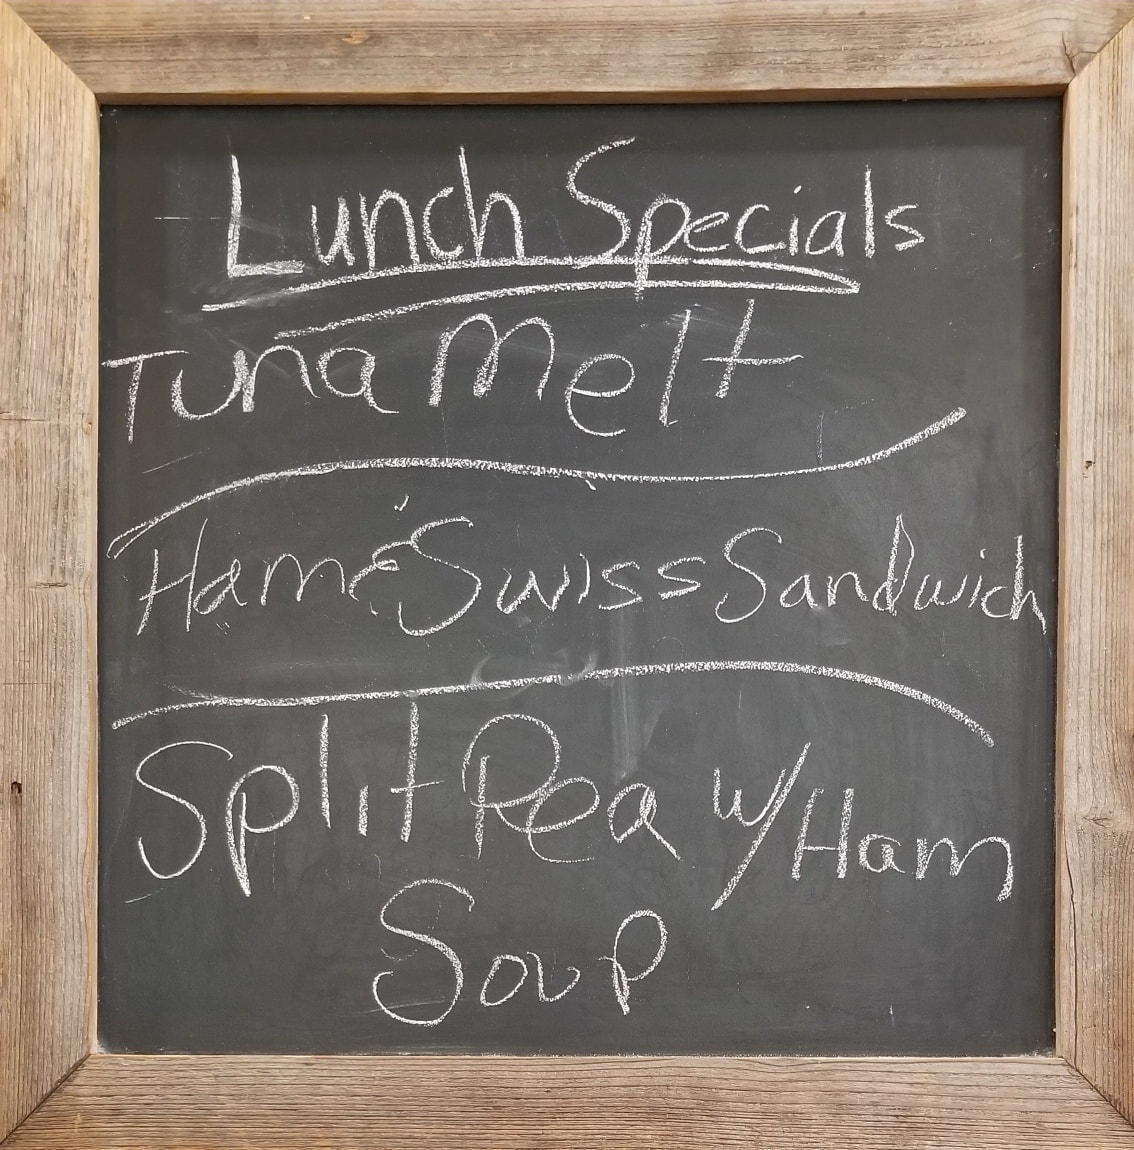 Lunch Specials
Tuna Melt
Ham & Swiss Sandwich
Split Pea w/ Ham
Soup